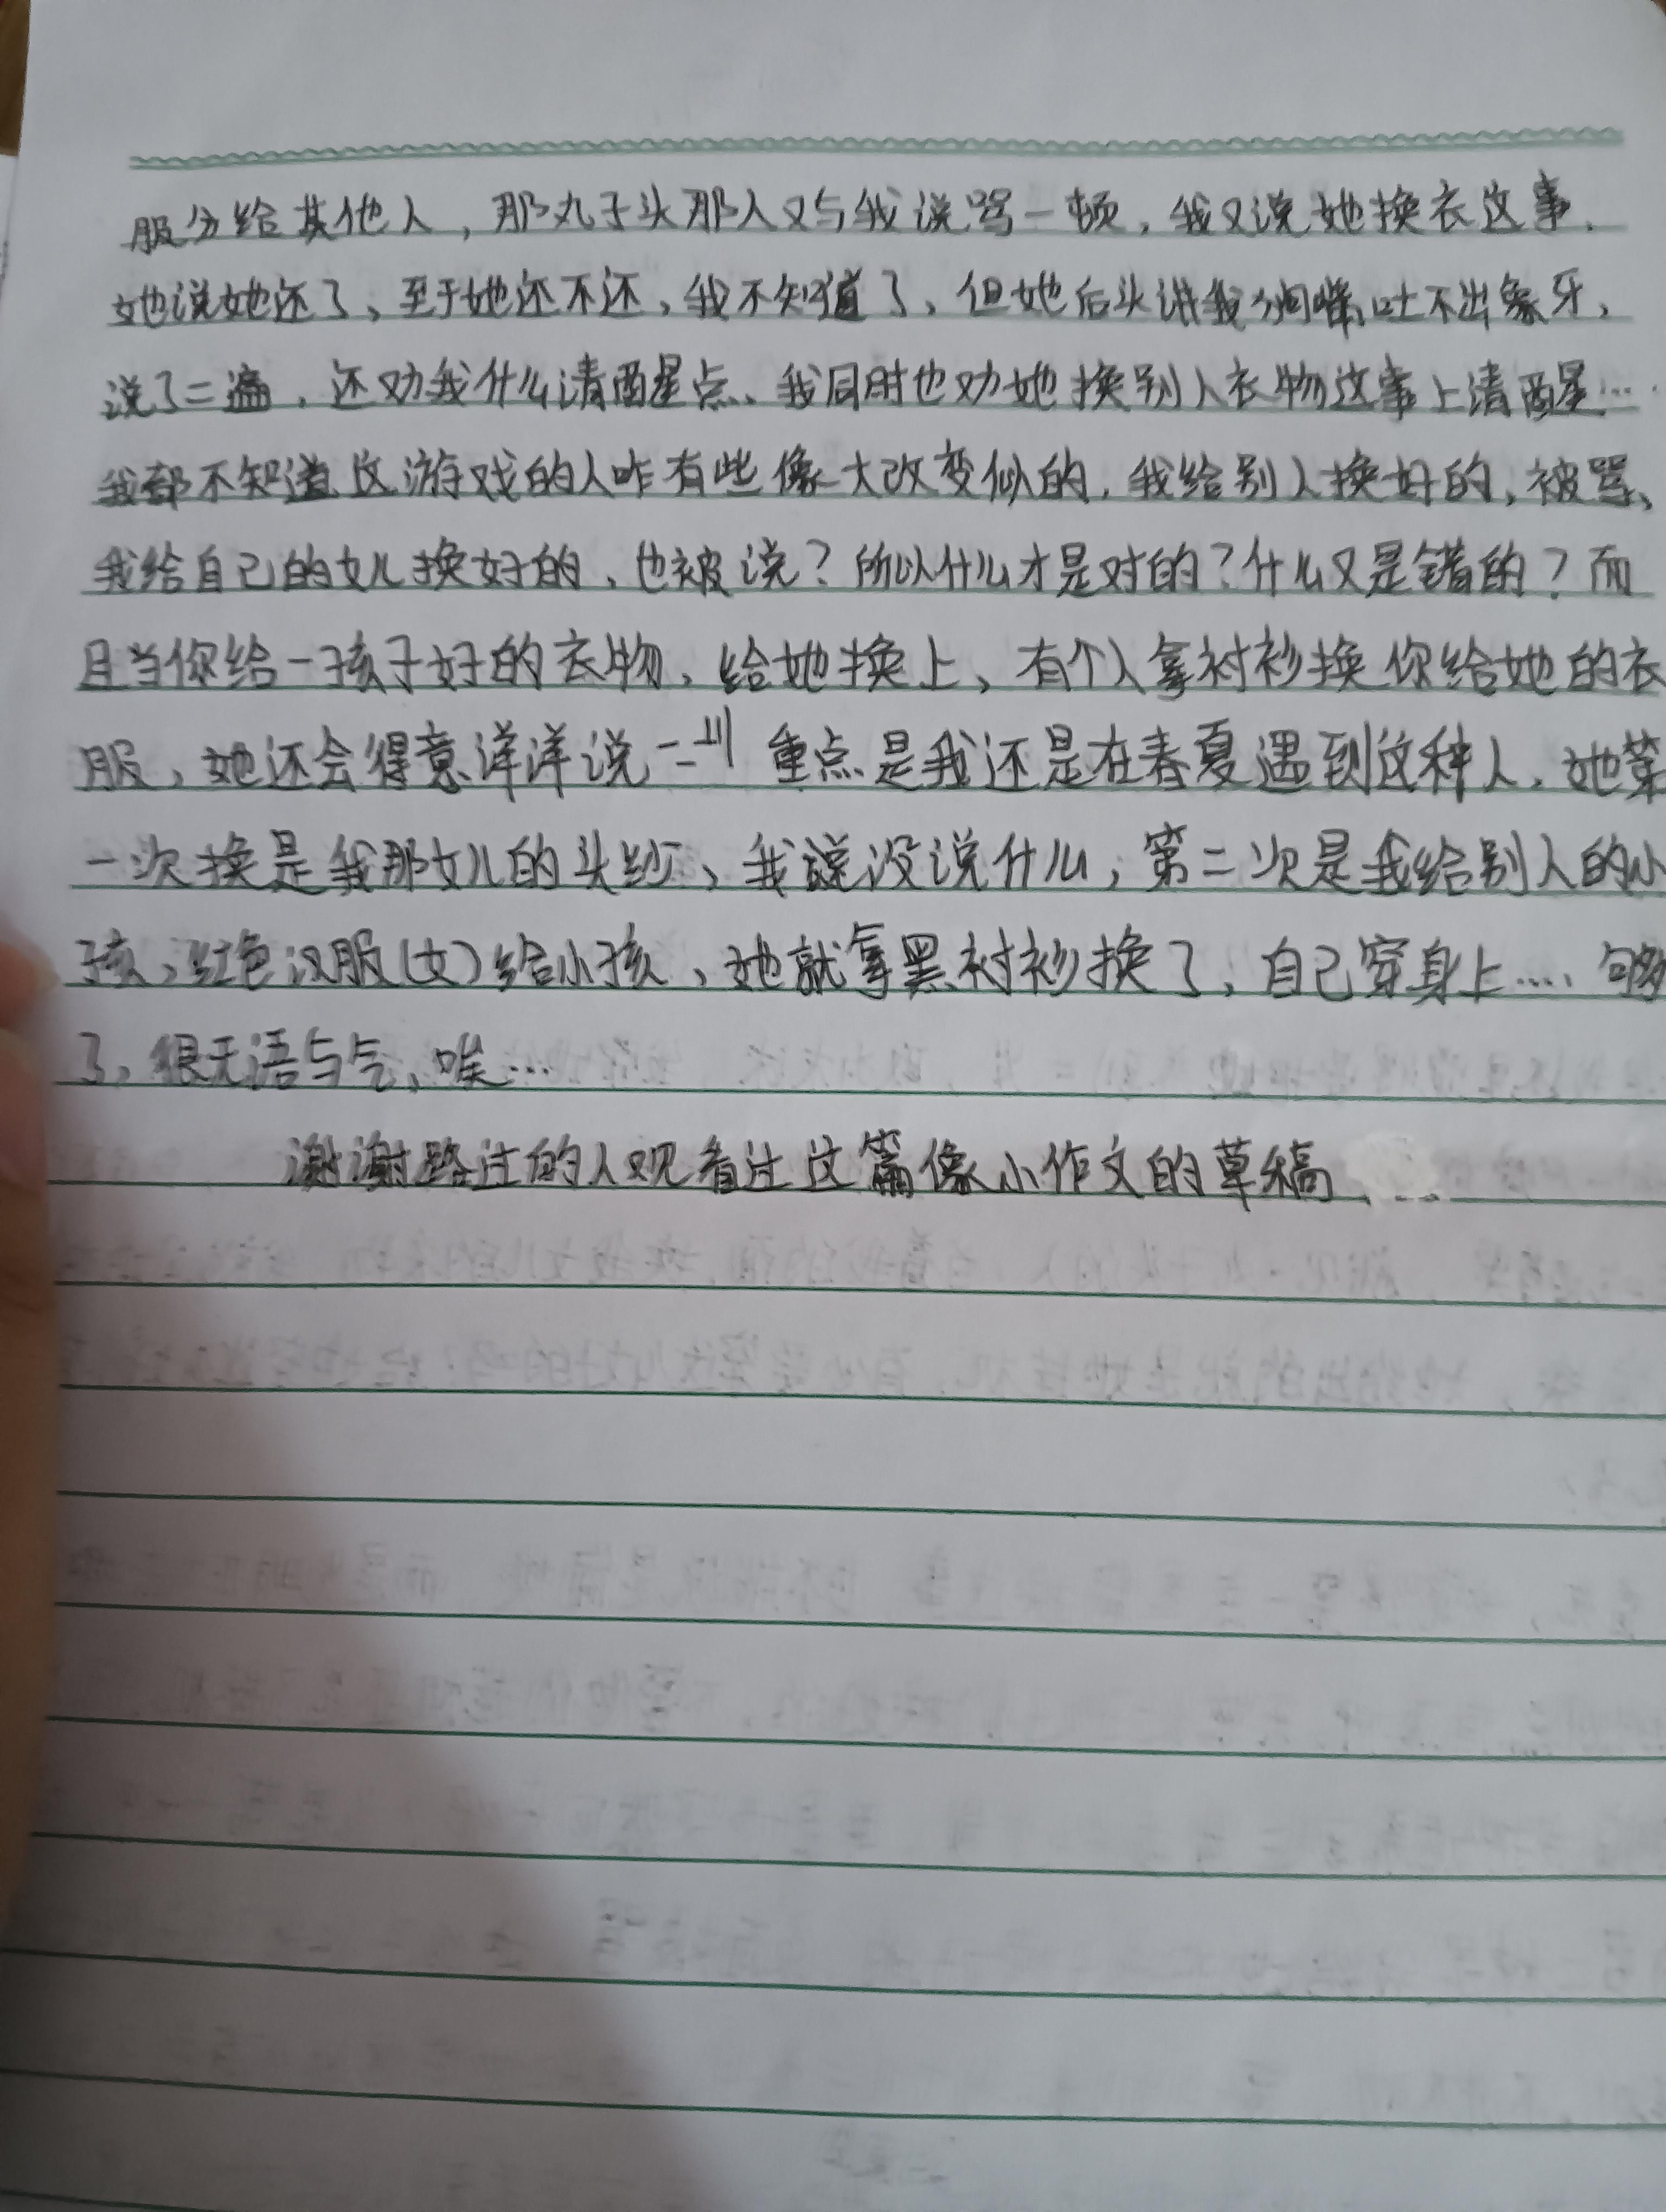 服分给其他人，那丸子头那人又与我说骂一顿，我又说她换衣这事.
她说她还了、至于她还不还，我不知道了、但她后头讲我狗嘴吐不出象牙，
说了二遍，还劝我什么清醒点、我同时也劝她换别人衣物这事上清醒…
我都不知道这游戏的人咋有些像大改变似的，我给别人换好的，被骂、
我给自己的女儿换好的，也被说？所以什么才是对的？什么又是错的？而
且当你给一孩子好的衣物，给她换上、有个人拿衬衫换你给她的衣
服，她还会得意洋洋说一 重点是我还是在春夏遇到这种人，她第
一次换是我那女儿的头纱、我说没说什么，第二次是我给别人的小
孩，红色汉服(女)给小孩，她就拿黑衬衫换了，自己穿身上…. 够
了，很无语与气，唉…
谢谢路过的人观看过这篇像小作文的草稿